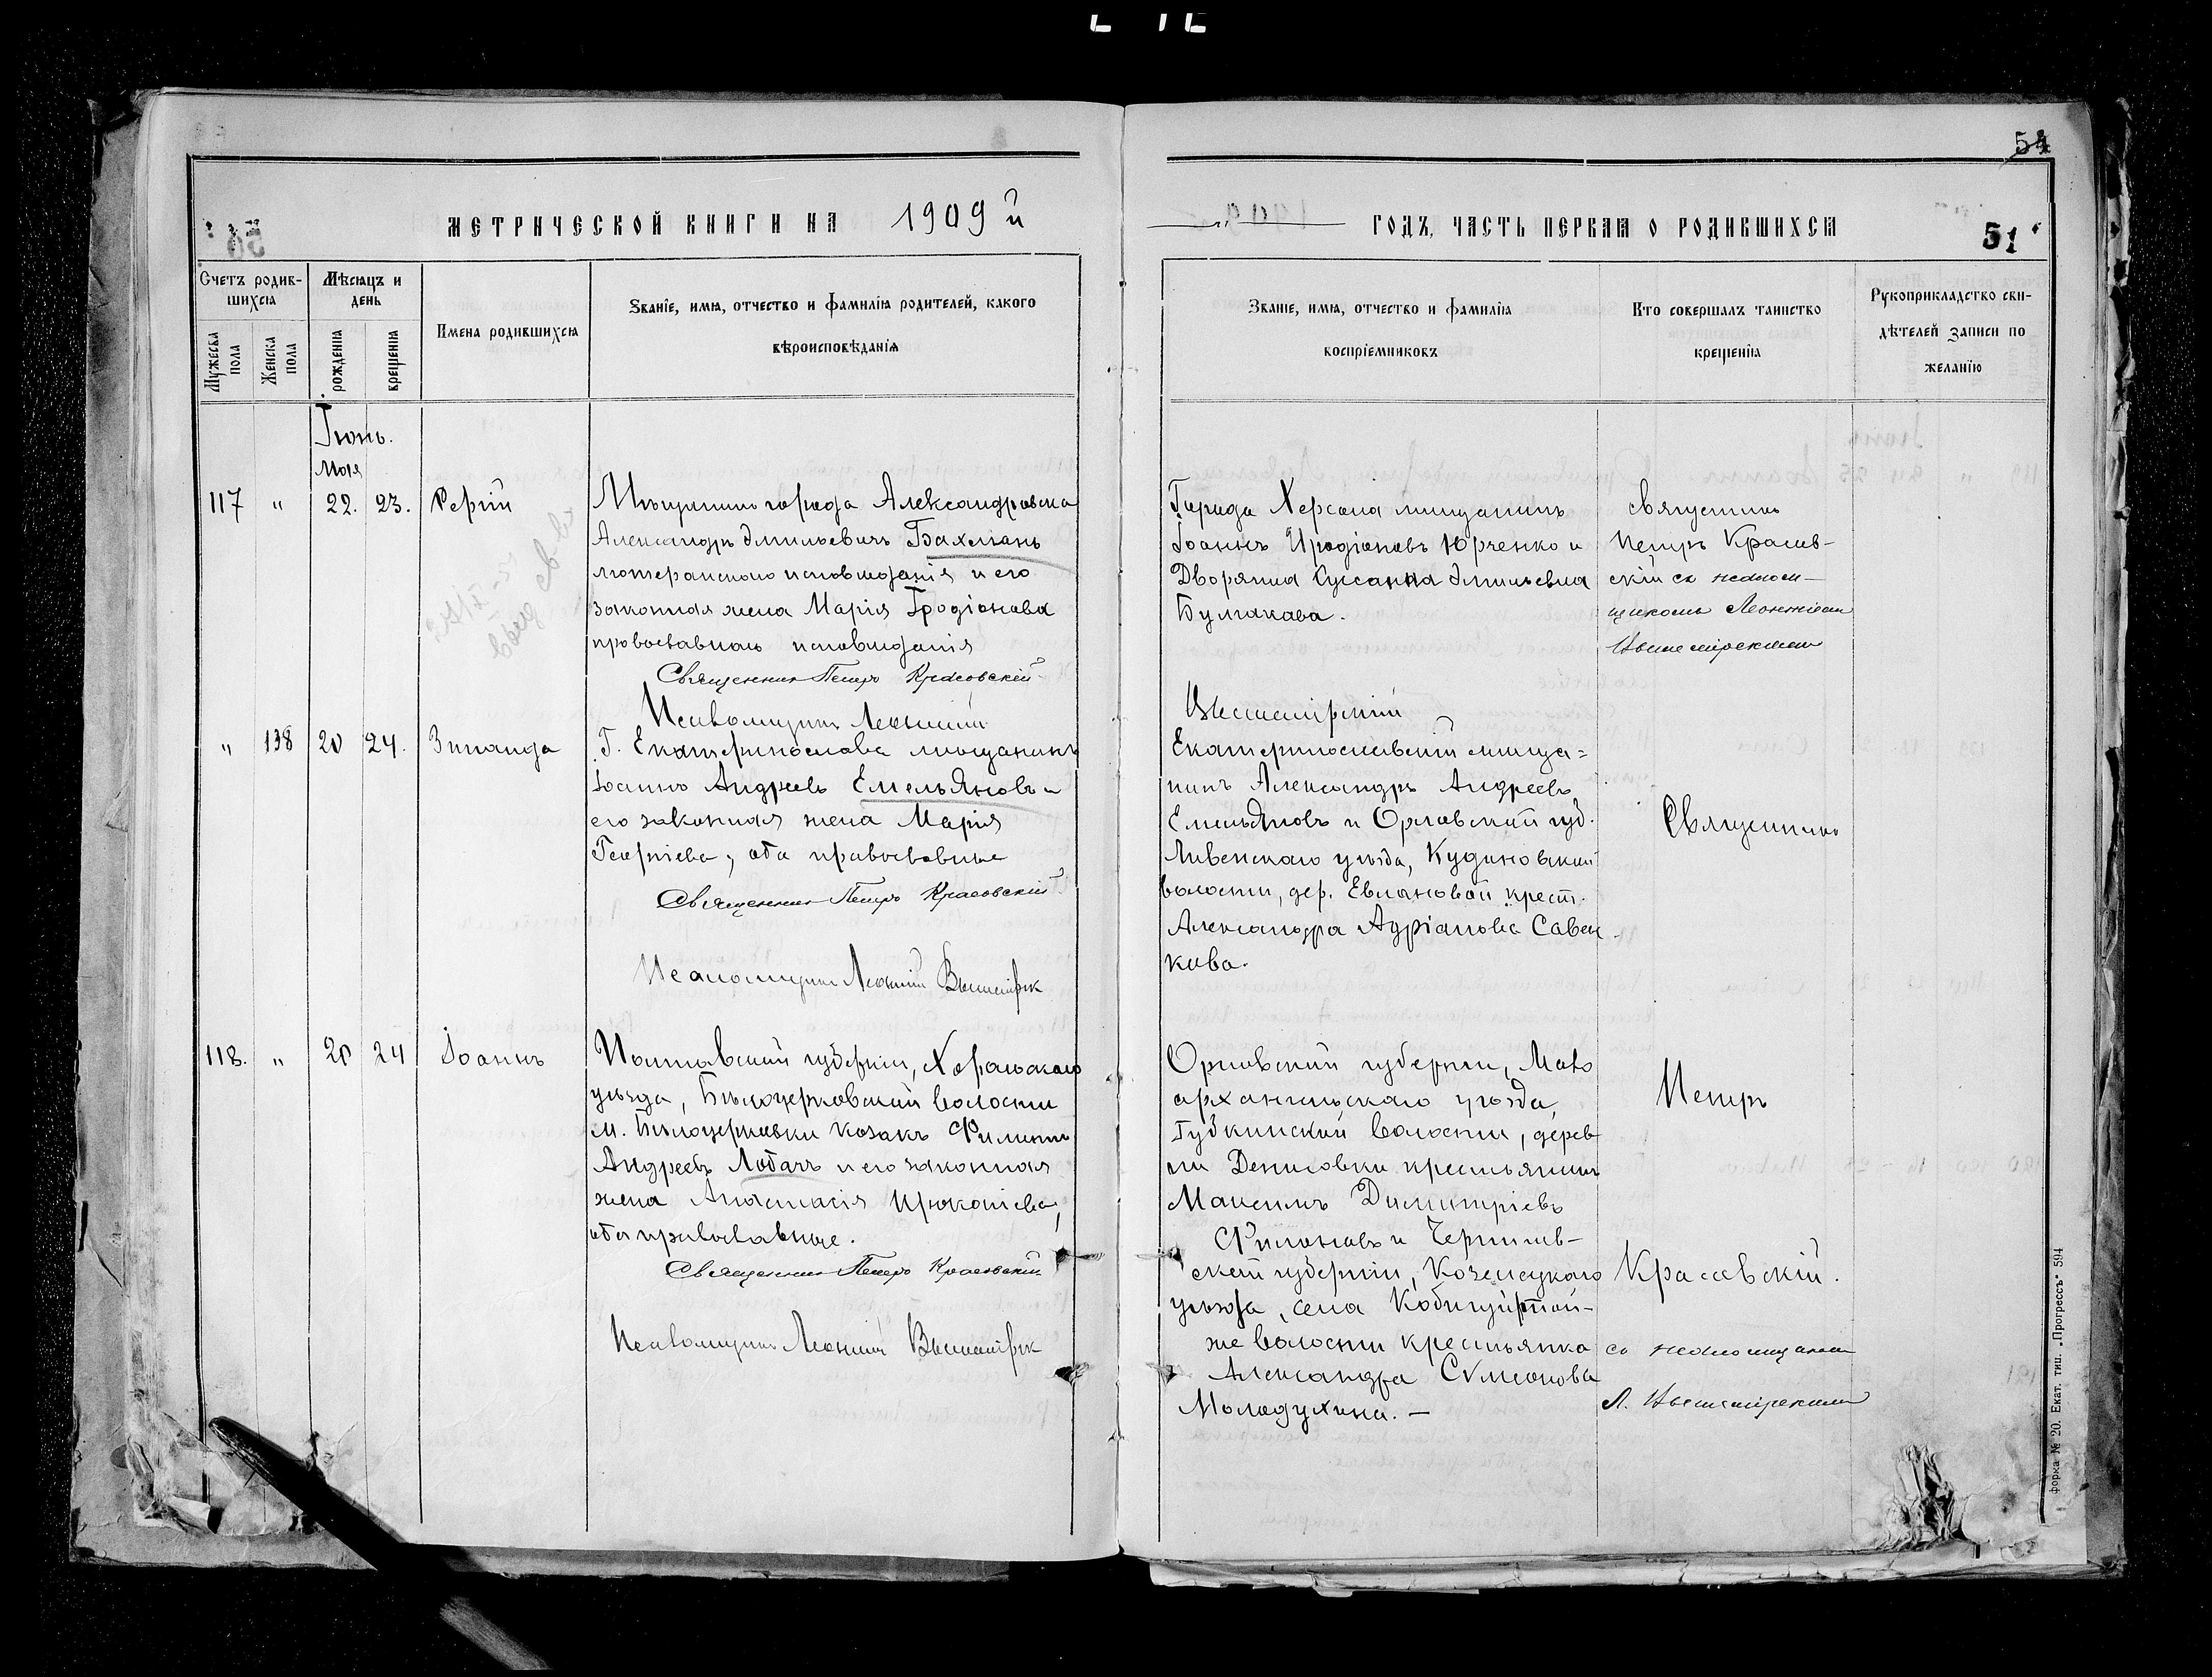 54
МЕТРИЧЕСКОЙ КНИГИ НА 1909 й
ГОДЪ, ЧАСТЬ ПЕРВАЯ О РОДИВШИХСЯ
51
Счетъ родив-
шихся
Мужеска пола
Женска пола
Мѣсяцъ и
день
рожденія
крещенія
Имена родившихся
Званіе, имя, отчество и фамилія родителей, какого
вѣроисповѣданія
Званіе, имя, отчество и фамилія
воспріемниковъ
Кто совершалъ таинство
крещенія
Рукоприкладство сви-
дѣтелей записи по
желанію
Іюнь.
Мая
117 " 22. 23.
Мѣщанинъ города Александровска
Александръ Эмильевичъ Бахманъ
лютеранскаго исповѣданія и его
законная жена Марія Иродіонова
православнаго исповѣданія
Священникъ Петръ Красовскій
Псаломщикъ Леонтій
Города Херсона мѣщанинъ
Іоаннъ Иродіоновъ Юрченко и
Дворянка Сусанна Эмильевна
Булгакова.
Священникъ
Петръ Красов-
скій съ псалом-
щикомъ Леонтіемъ
" 138 20 24. Зинаида
Г. Екатеринослава мѣщанинъ
Іоаннъ Андреевъ Емельяновъ и
его законная жена Марія
Георгіева, оба православные
Священникъ Петръ Красовскій
Псаломщикъ Леонтій
Екатеринославскій мѣща=
нинъ Александръ Андреевъ
Емельяновъ и Орловской губ.
Ливенскаго уѣзда, Кудиновской
волости, дер. Евлановой крест.
Александра Адріанова Савен-
кова.
Священникъ
118. " 20 24 Іоаннъ
Полтавской губерніи, Хорольскаго
уѣзда, Бѣлоцерковской волости
м. Бѣлоцерковки козакъ Филиппъ
Андреевъ Лобачъ и его законная
жена Анастасія Прокопіева,
оба православные.
Священникъ Петръ Красовскій
Псаломщикъ Леонтій
Орловской губерніи, Мало
архангельскаго уѣзда,
Губкинской волости, дерев-
ни Денисовки крестьянинъ
Максимъ Димитріевъ
Филоновъ и Чернигов-
ской губерніи, Козелецкаго
уѣзда, села той-
же волости крестьянка
Александра Сѵмеонова
Молодухина. —
Петръ
Красовскій.
съ псаломщикомъ
Л.
Форма № 20. Екат. тип. „Прогрессъ“ 594